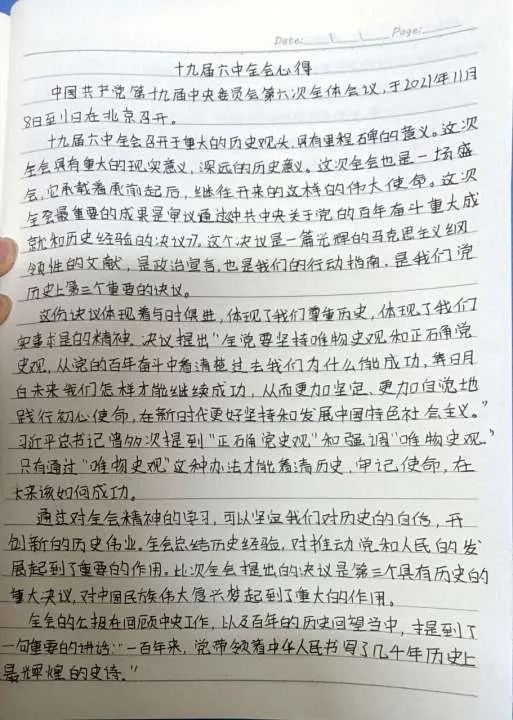 Date: Page:
十九届六中全会心得
中国共产党第十九届中央委员会第六次全体会议,于2021年11月
8日至11日在北京召开。
十九届六中全会召开于重大的历史观头,具有里程碑的意义。这次
全会具有重大的现实意义,深远的历史意义。这次全会也是一场盛
会,它承载着承前起后,继往开来的这样的伟大使命。这次
全会最重要的成果是审议通过《中共中央关于党的百年奋斗重大成
就和历史经验的决议》,这个决议是一篇光辉的马克思主义纲
领性的文献,是政治宣言,也是我们的行动指南,是我们党
历史上第三个重要的决议。
这份决议体现着与时俱进,体现了我们尊重历史,体现了我们
实事求是的精神。决议提出"全党要坚持唯物史观和正确党
史观,从党的百年奋斗中看清楚过去我们为什么能成功,弄明
白未来我们怎样才能继续成功,从而更加坚定、更加自觉地
践行初心使命,在新时代更好坚持和发展中国特色社会主义。"
习近平总书记曾多次提到"正确党史观"和强调"唯物史观"
只有通过"唯物史观"这种办法才能看清历史,牢记使命,在
未来该如何成功。
通过对全会精神的学习,可以坚定我们对历史的自信,开
创新的历史伟业。全会总结历史经验,对推动党和人民的发
展起到了重要的作用。此次全会提出的决议是第三个具有历史的
重大决议,对中国民族伟大复兴梦起到了重大的作用。
全会的公报在回顾中央工作,以及百年的历史回望当中,提到了
一句重要的讲话:"一百年来,党带领着中华人民书写了几千年历史上
最辉煌的史诗。"